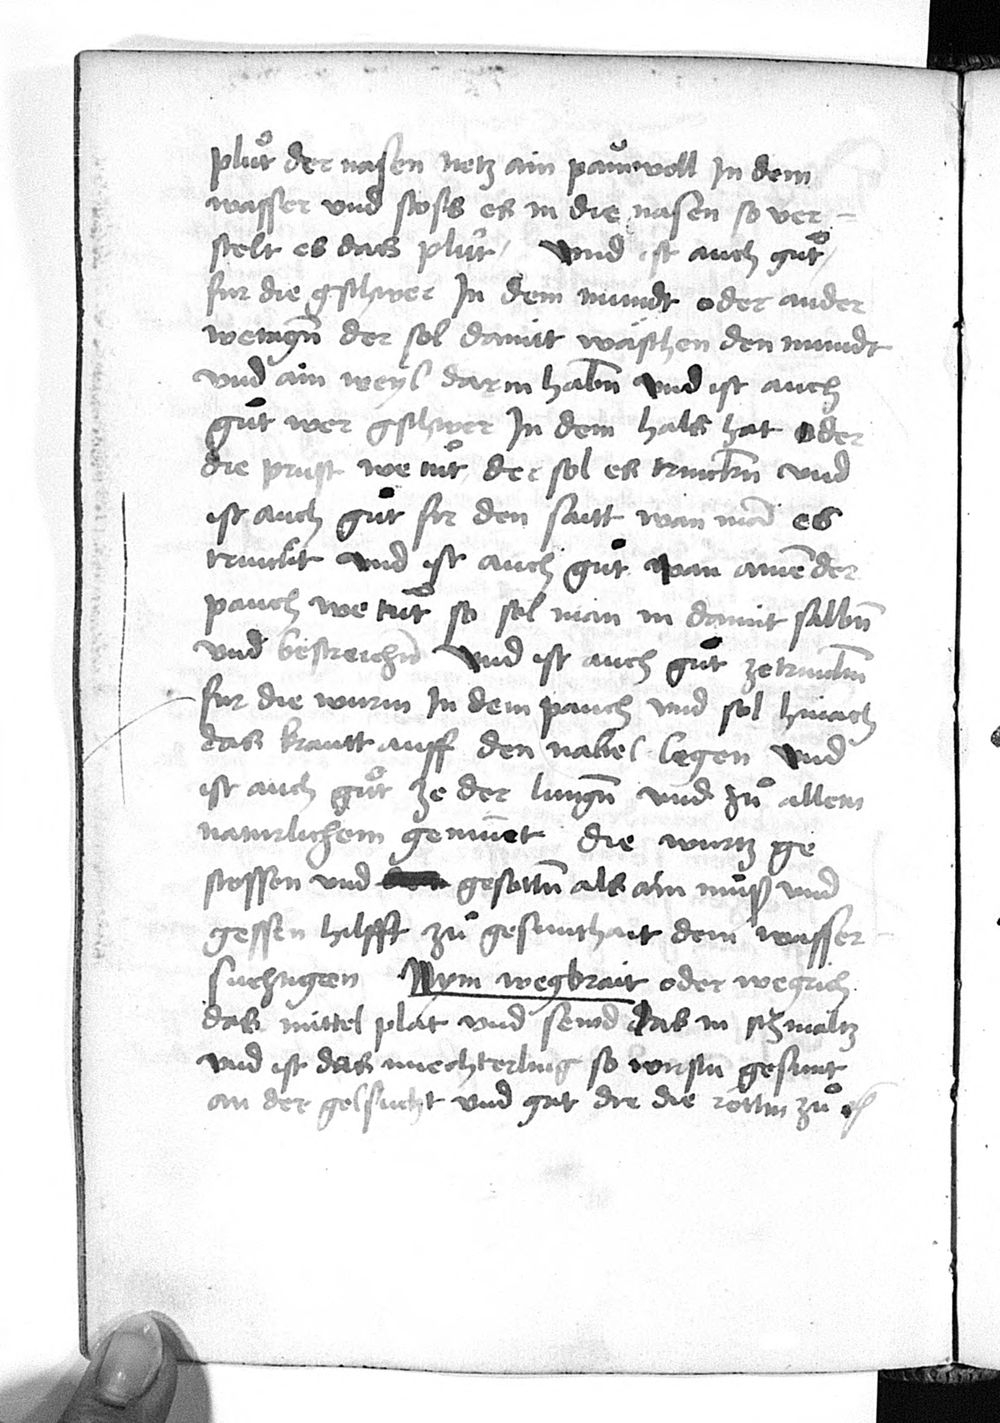 plůt der nasen netz ain paůmwoll In dem
wasser vnd stoss es in die nasen so ver-
stelt es das plůt / vnd ist auch gůt /
fur die gschwer In dem mundt oder ander
wetagn̄ der sol damit wäschen den mundt
vnd ain weyl darin habn̄ vnd ist auch
gůt wer gschwer In dem hals hat oder
die prust we tůt / der sol es trinckn̄ vnd
ist auch gůt fir den saitt wan mā es
trinckt vnd ist auch gůt wan ainē der
pauch we tůt so sol man in damit salbn̄
vnd bestreichn̄ vnd ist auch gůt zetrinckn̄
fur die wurm In dem pauch vnd sol hinach
das krautt auff den nabel legen vnd
ist auch gůt ze der lungn̄ vnd zů allem
naturlichem die wurtz ge
stossen vnd gesottn̄ als ain můß vnd
gessen hilfft zů gesunthait dem wasser-
suchtigen Nym wegbrait oder wegrich
das mittel plat vnd send das in schmaltz
vnd iss das nuechterling so wirstu gesunt
an der gelsucht vnd gut dir die rottin zů